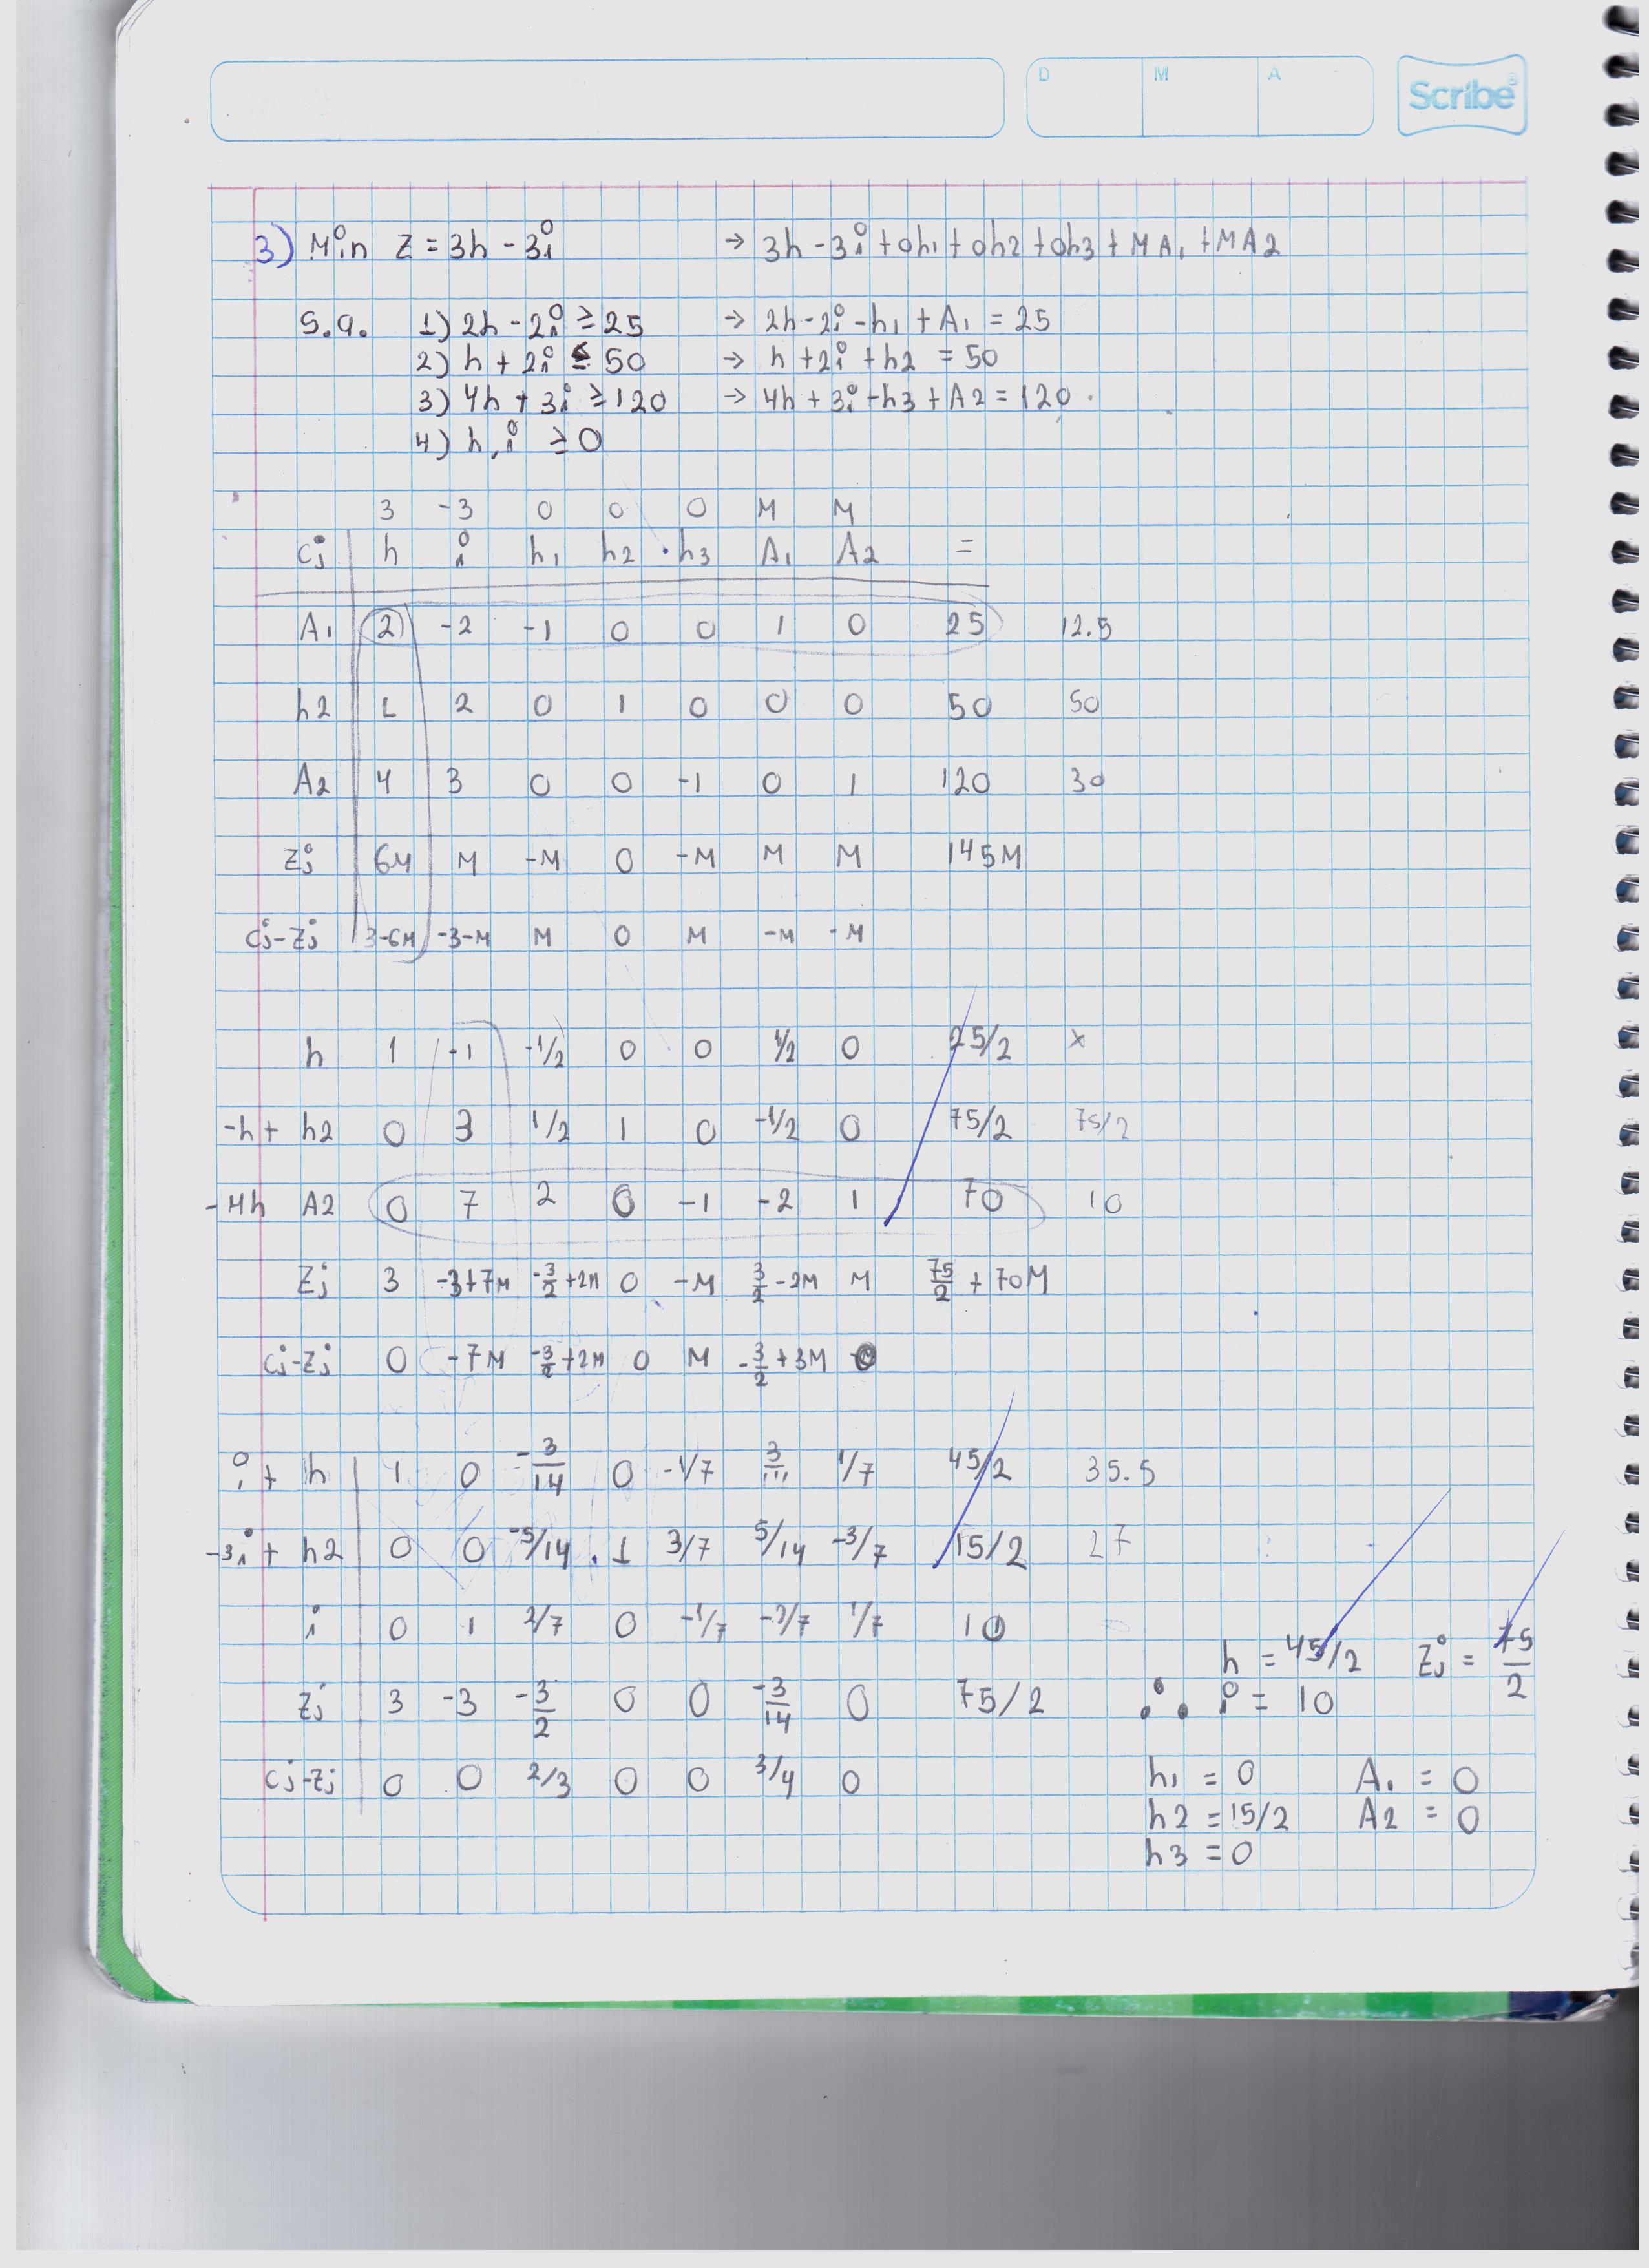 D M A Scribe
3) Min Z = 3h - 3i → 3h - 3i + 0h1 + 0h2 + 0h3 + MA1 + MA2
S.a. 1) 2h - 2i ≥ 25 → 2h - 2i - h1 + A1 = 25
2) h + 2i ≤ 50 → h + 2i + h2 = 50
3) 4h + 3i ≥ 120 → 4h + 3i - h3 + A2 = 120
4) h, i ≥ 0
3 -3 0 0 0 M M
Cj h i h1 h2 h3 A1 A2 =
A1 2 -2 -1 0 0 1 0 25 12.5
h2 1 2 0 1 0 0 0 50 50
A2 4 3 0 0 -1 0 1 120 30
Zj 6M M -M 0 -M M M 145M
Cj-Zj 3-6M -3-M M 0 M -M -M
h 1 -1 -1/2 0 0 1/2 0 25/2 x
-h+ h2 0 3 1/2 1 0 -1/2 0 75/2 75/2
-4h A2 0 7 2 0 -1 -2 1 70 10
Zj 3 -3+7M -3/2+2M 0 -M 3/2-2M M 75/2 + 70M
Cj-Zj 0 -7M -3/2+2M 0 M -3/2+3M
i + h 1 0 -3/14 0 -1/7 3/14 1/7 45/2 35.5
-3i + h2 0 0 -5/14 1 3/7 5/14 -3/7 15/2 27
i 0 1 2/7 0 -1/7 -2/7 1/7 10
h = 45/2 Zj = 75/2
Zj 3 -3 -3/2 0 0 -3/14 0 75/2 ∴ i = 10
Cj-Zj 0 0 2/3 0 0 3/4 0 h1 = 0 A1 = 0
h2 = 15/2 A2 = 0
h3 = 0